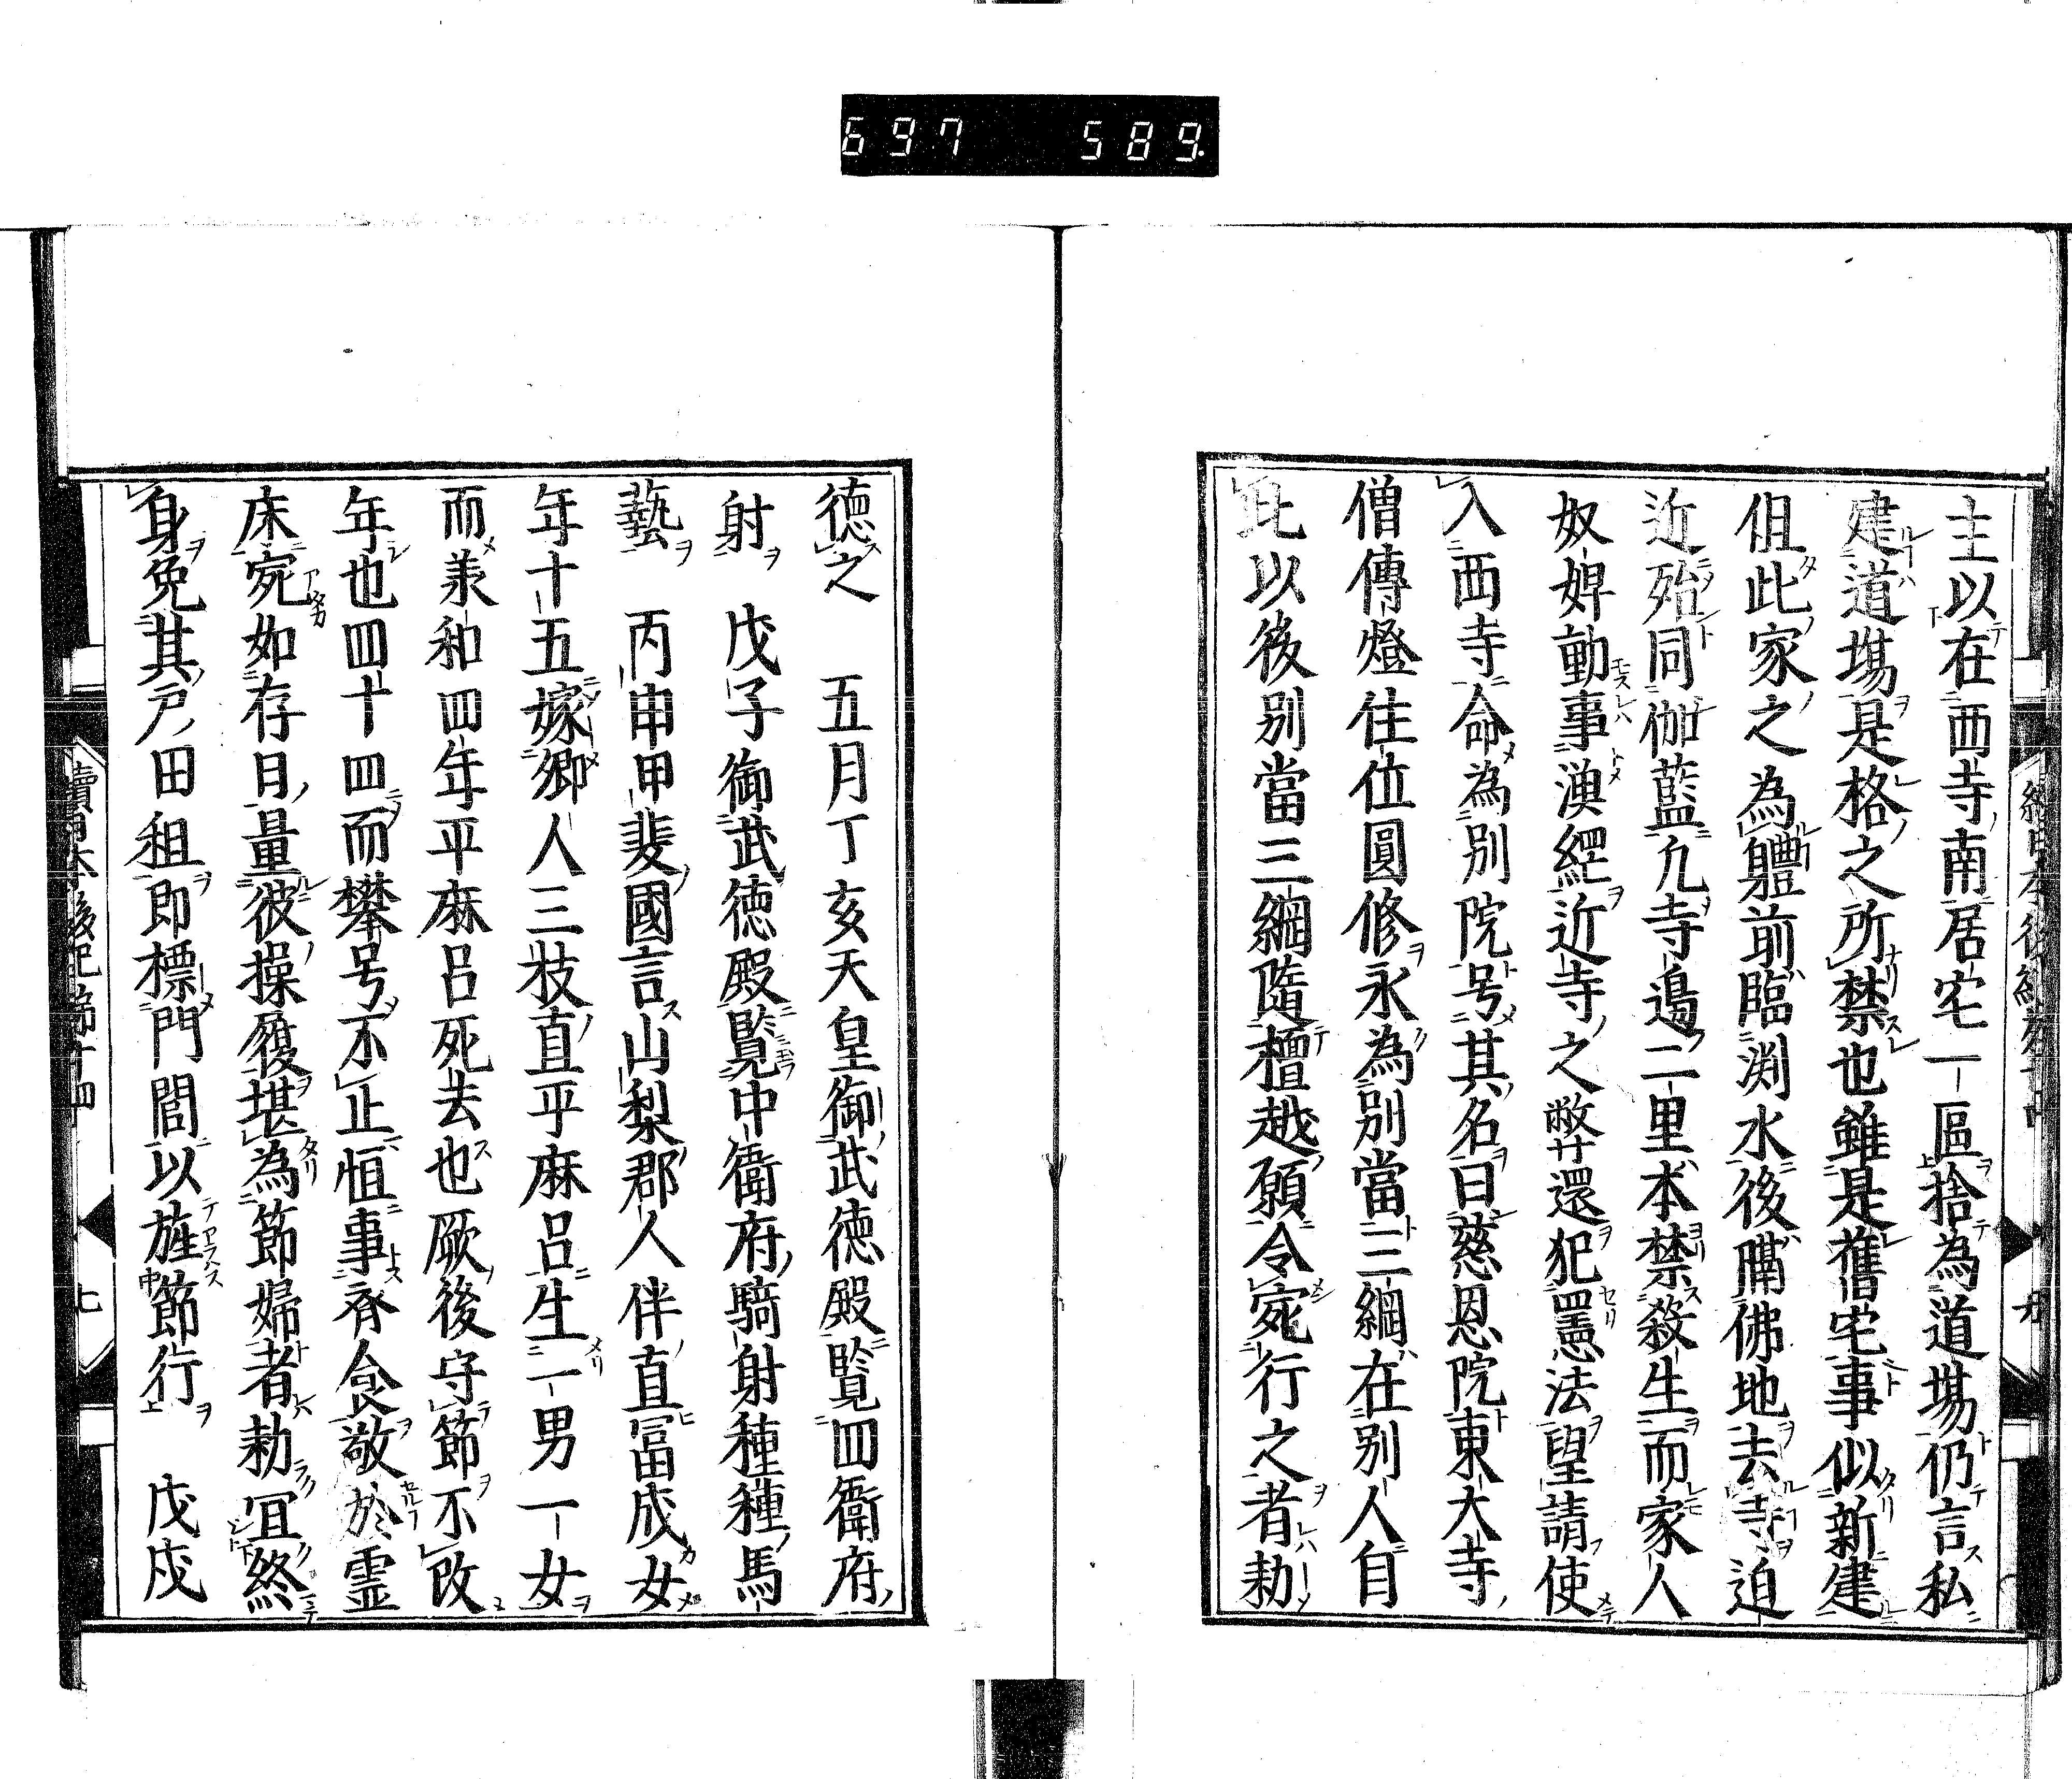 697 589
主以在西寺南居宅一區捨為道場仍言私
建道場是格之所禁也雖是舊宅事似新建
伹此家之為體前臨渕水後隣佛地去寺迫
近殆同伽藍凢寺邉二里本禁殺生而家人
奴婢動事漁經近寺之弊還犯憲法望請使
入西寺命為別院号其名曰慈恩院東大寺
僧傳燈住位圓修永為別當三綱在別人自
此以後別當三綱隨檀越願令宛行之者勅
德之　五月丁亥天皇御武徳殿覧四衛府
射　戊子御武徳殿覧中衛府騎射種種馬
藝　丙申甲斐國言山梨郡人伴直冨成女
年十五嫁郷人三枝直平麻呂生一男一女
而羕和四年平麻呂死去也厥後守節不改
年也四十四而攀号不止恒事斉食敬於霊
床宛如存日量彼操履堪為節婦者勅冝終
身免其戸田租即標門閭以旌節行　戊戌
續日本後紀卷十四
七